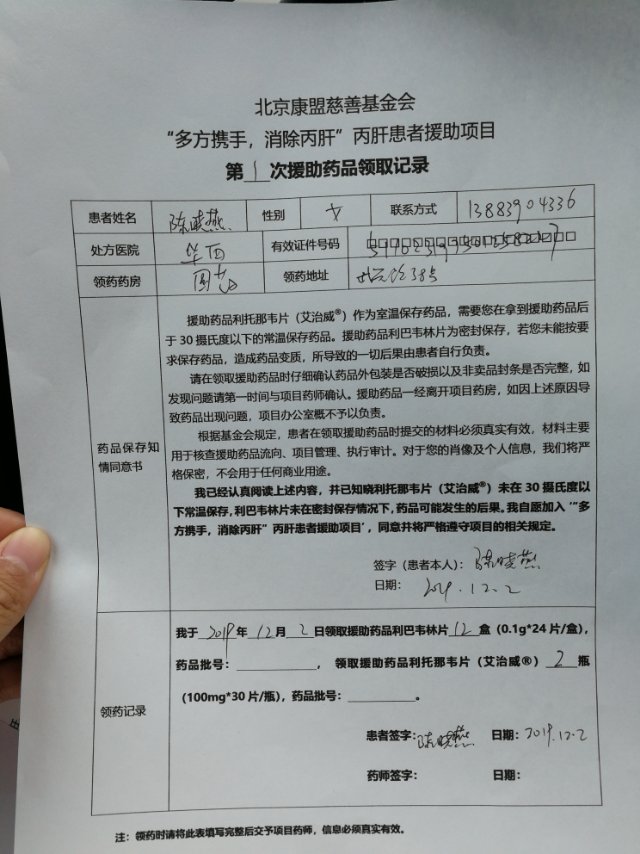 北京康盟慈善基金会
“多方携手，消除丙肝”丙肝患者援助项目
第 1 次援助药品领取记录
患者姓名 陈晓燕 性别 女 联系方式 13883904336
处方医院 华西 有效证件号码
领药药房 领药地址
援助药品利托那韦片（艾治威®）作为室温保存药品，需要您在拿到援助药品后
于 30 摄氏度以下的常温保存药品。援助药品利巴韦林片为密封保存，若您未能按要
求保存药品，造成药品变质，所导致的一切后果由患者自行负责。
请在领取援助药品时仔细确认药品外包装是否破损以及非卖品封条是否完整，如
发现问题请第一时间与项目药师确认。援助药品一经离开项目药房，如因上述原因导
致药品出现问题，项目办公室概不予以负责。
根据基金会规定，患者在领取援助药品时提交的材料必须真实有效，材料主要
用于核查援助药品流向、项目管理、执行审计。对于您的肖像及个人信息，我们将严
格保密，不会用于任何商业用途。
药品保存知
情同意书
我已经认真阅读上述内容，并已知晓利托那韦片（艾治威®）未在 30 摄氏度以
下常温保存，利巴韦林片未在密封保存情况下，药品可能发生的后果。我自愿加入 ‘“多
方携手，消除丙肝”丙肝患者援助项目’，同意并将严格遵守项目的相关规定。
签字（患者本人）：陈晓燕
日期： 2019.12.2
我于 2019 年 12 月 2 日领取援助药品利巴韦林片 12 盒（0.1g*24 片/盒），
药品批号：________，领取援助药品利托那韦片（艾治威®） 2 瓶
（100mg*30 片/瓶），药品批号：________。
领药记录
患者签字：陈晓燕 日期：2019.12.2
药师签字： 日期：
注：领药时请将此表填写完整后交予项目药师，信息必须真实有效。